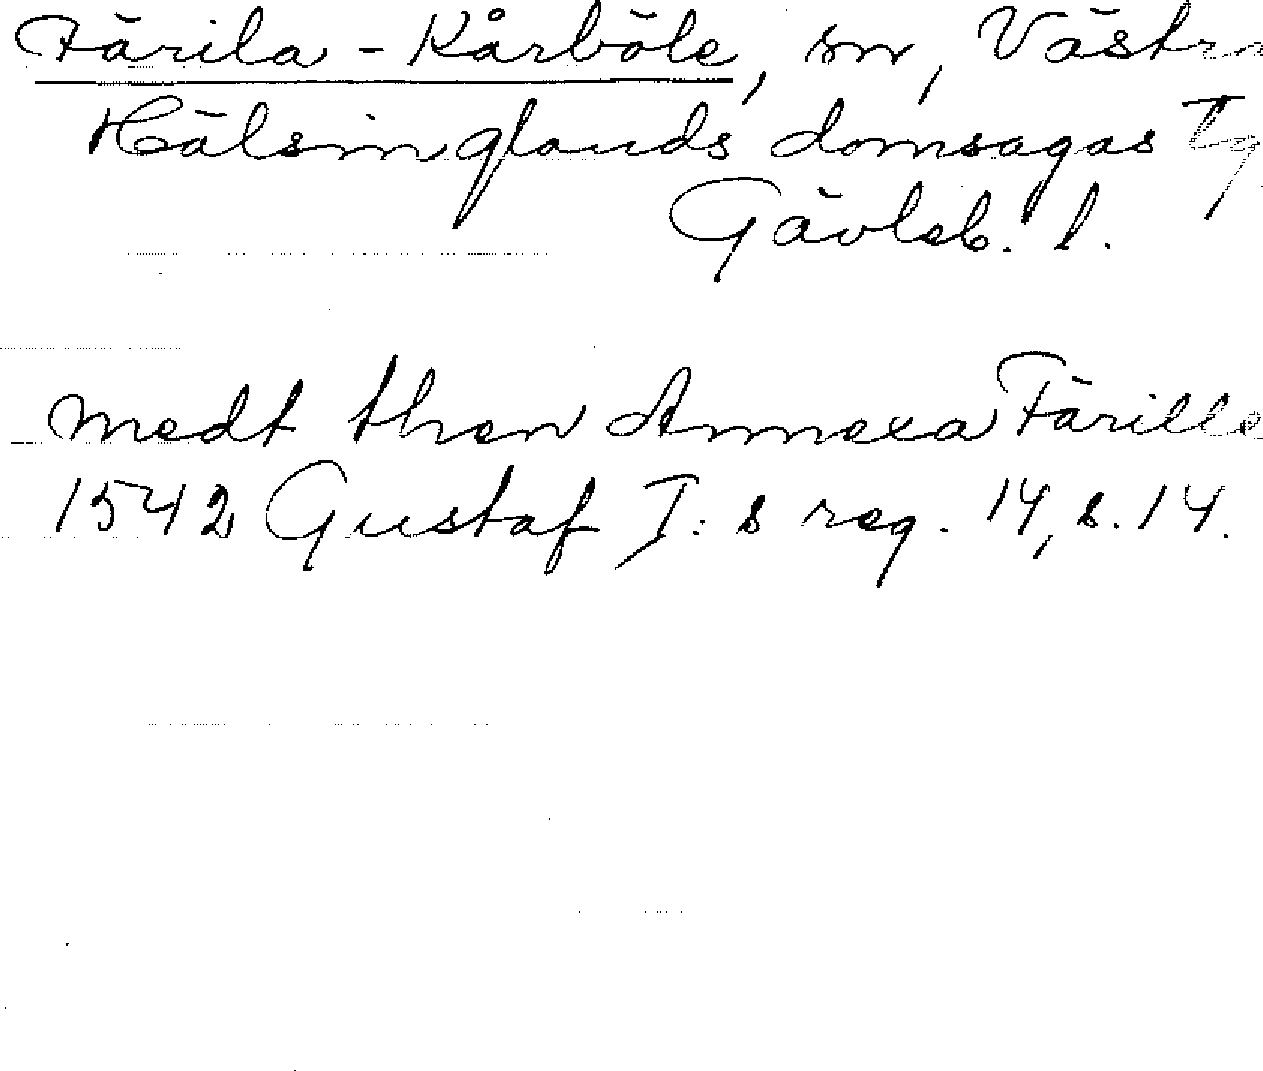 Färila-Kårböle, sn, Västra
Hälsinglands domsagas tg
Gävleb. l.
medt then Annexa Färille
1542 Gustaf I:s reg. 14, s. 14.